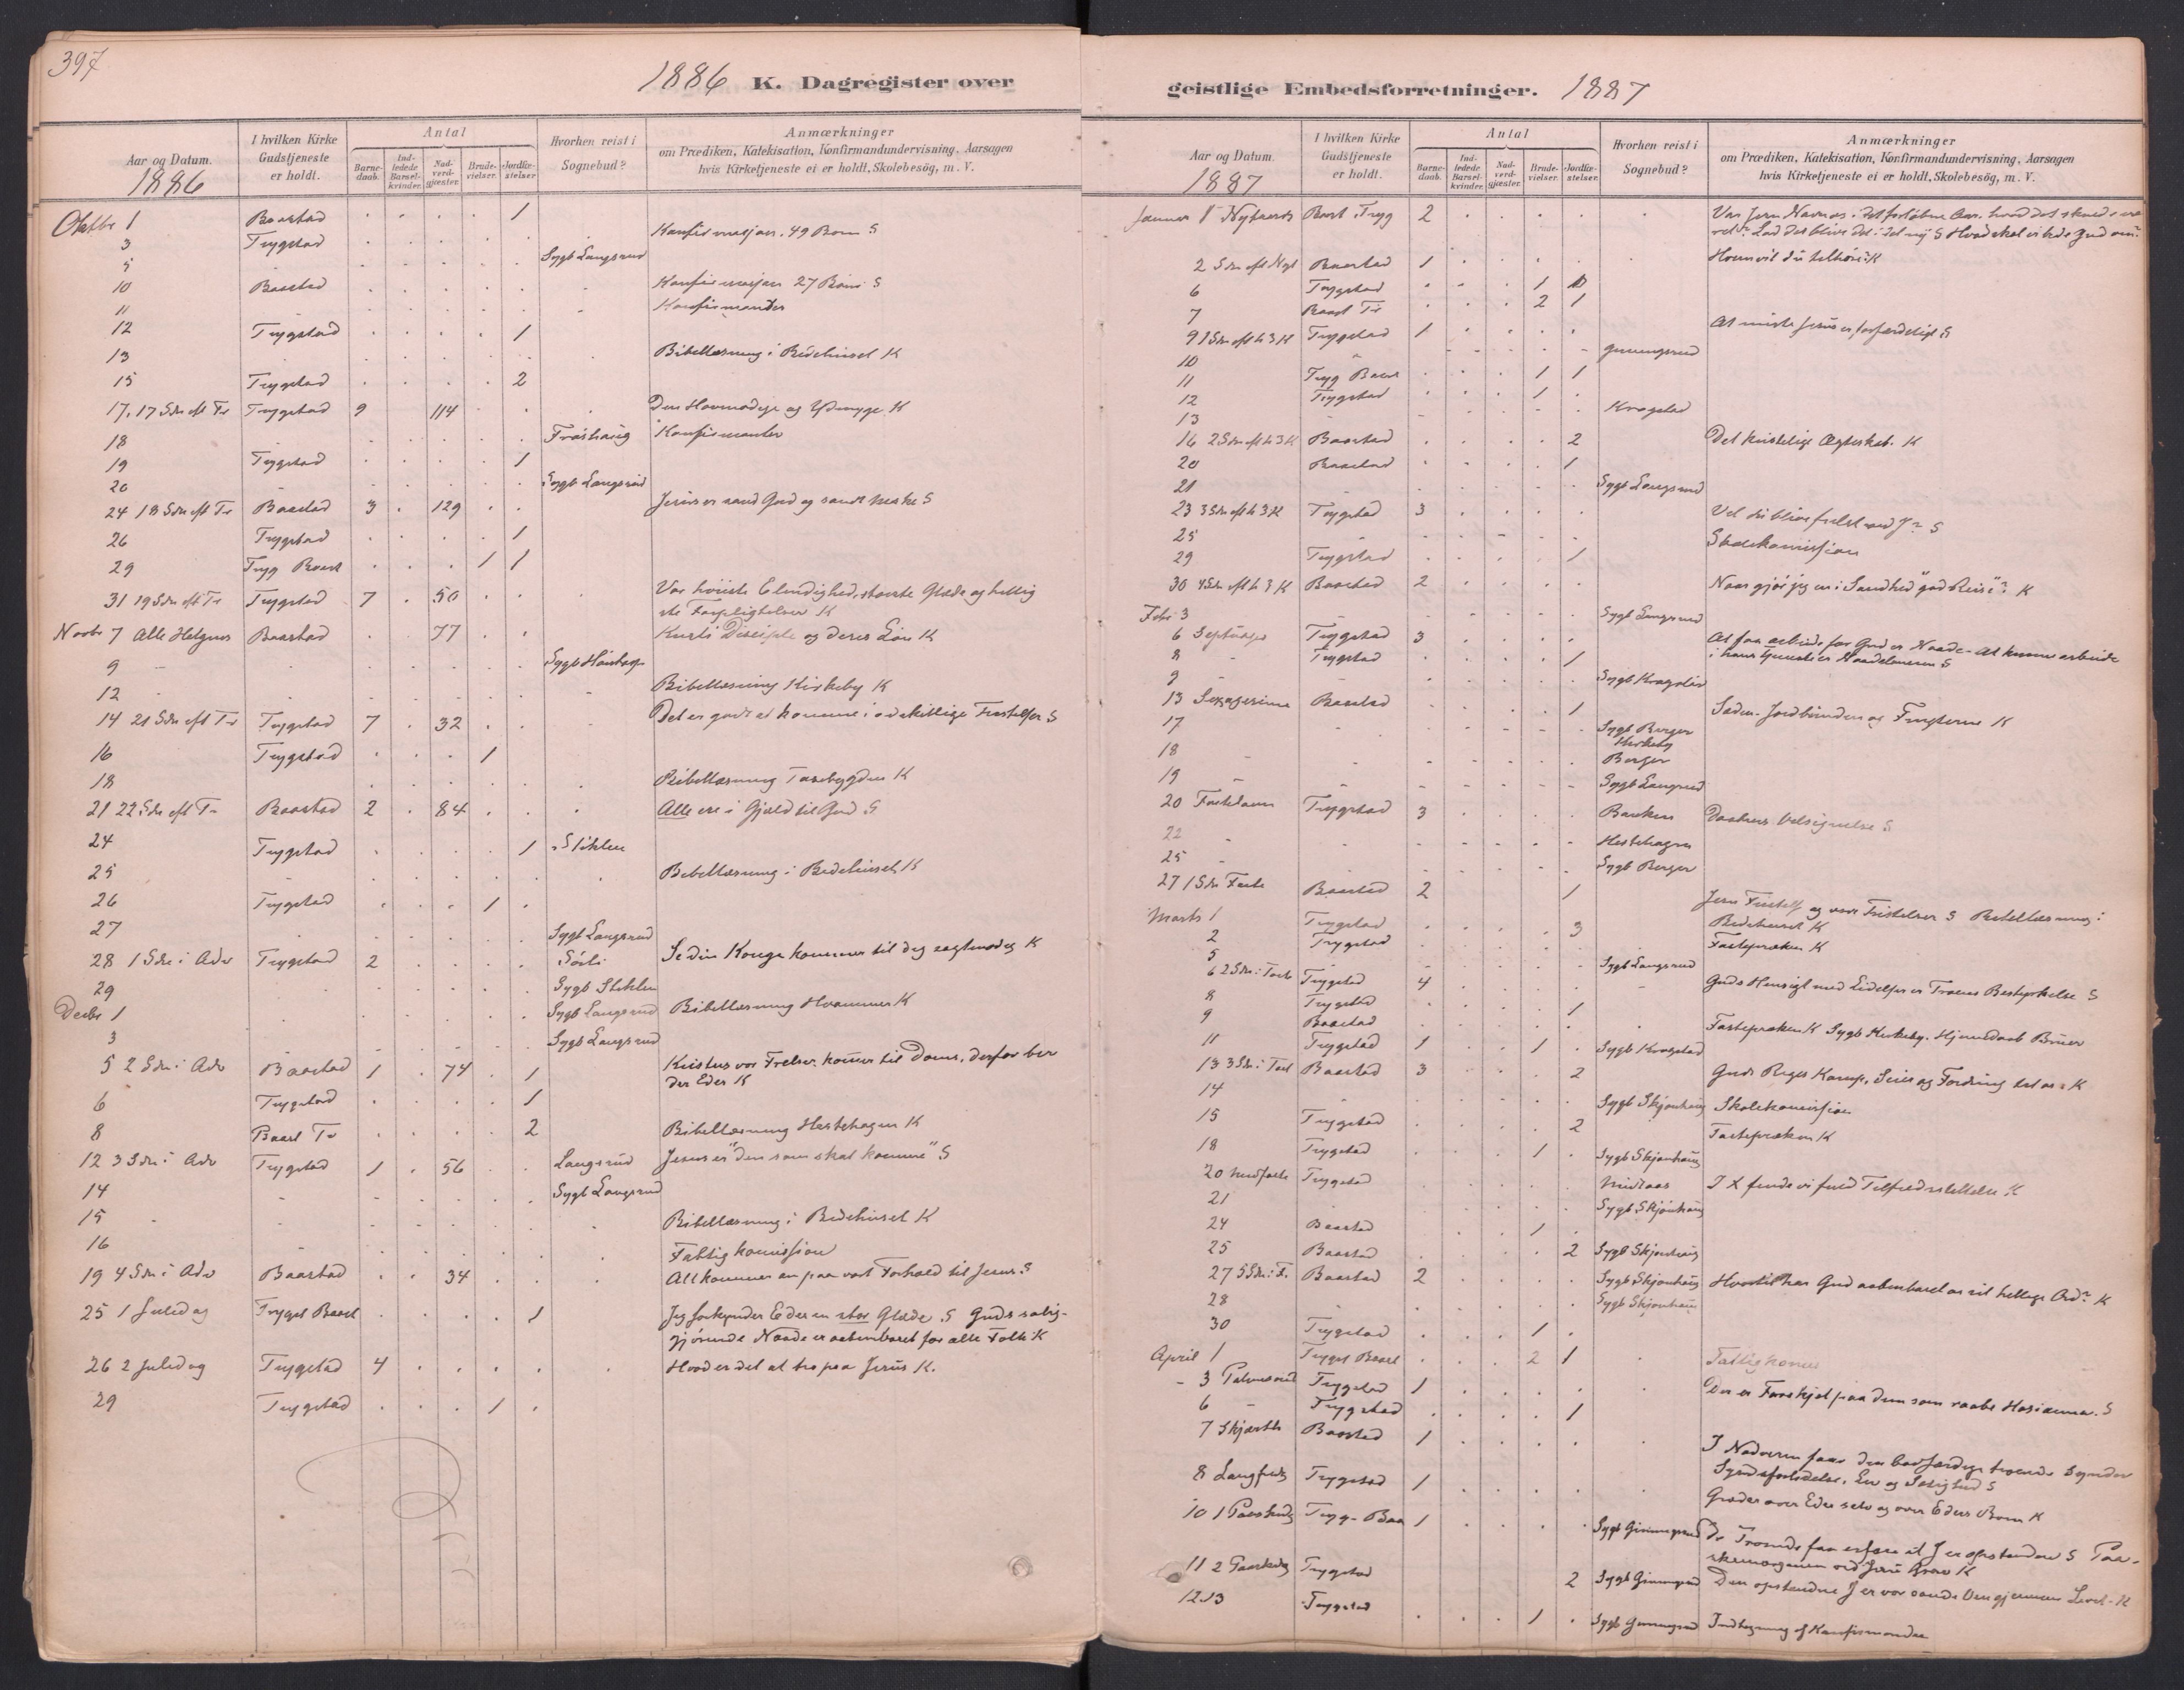 397
1886 K. Dagregister over
Aar og Datum.
1886
I hvilken Kirke Gudstjeneste er holdt.
Antal
Barnedaab.
Indledede Barselkvinder.
Nadverdgjæster.
Brudevielser.
Jordfæstelser
Hvorhen reist i Sognebud?
Anmærkninger
om Prædiken, Katekisation, Konfirmandundervisning, Aarsagen
hvis Kirketjeneste ei er holdt, Skolebesög, m. V.
Oktbr 1 Baastad 1
3 Trygstad Konfirmasjon. 49 Børn S
5 Sygb Langsrud
10 Baastad Konfirmasjon 27 Børn S
11 Konfirmanter
12 Trygstad 1
13 Bibellæsning i Bedehuset K
15 Trygstad 2
17, 17 Sdn eft Tr Trygstad 9 114 Den Hovmodige og Ydmyge K
18 Frøshaug Konfirmanter
19 Trygstad 1
20 Sygb Langsrud
24 18 Sdn eft Tr Baastad 3 129 Jesus er sand Gud og sandt Mske S
26 Trygstad 1
29 Tryg Baast 1 1
31 19 Sdn eft Tr Trygstad 7 50 Vor høieste Elendighed, største Glæde og hellig
ste Forpligtelser K
Novbr 7 Alle Helgens Baastad 77 Kristi Disciple og deres Løn K
9 Sygb
12 Bibellæsning Kirkeby K
14 21 Sdn eft Tr Trygstad 7 32 Det er godt at komme i adskillige Fristelser S
16 Trygstad 1
18 Bibellæsning K
21 22 Sdn eft Tr Baastad 2 84 Alle ere i Gjæld til Gud S
24 Trygstad 1 Stiklen
25 Bibellæsning i Bedehuset K
26 Trygstad 1
27 Sygb Langsrud
28 1 Sdn i Adv Trygstad 2 Sørli Se din Konge kommer til dig sagtmodig K
29 Sygb Stiklen
Decbr 1 Sygb Langsrud Bibellæsning Hvammer K
3 Sygb Langsrud
5 2 Sdn i Adv Baastad 1 74 1 Kristus vor Frelser kommer til Doms, derfor ber
der Eder K
6 Trygstad 1
8 Baast Tr 2 Bibellæsning Hestehagen K
12 3 Sdn i Adv Trygstad 1 56 Langsrud Jesus er "den som skal komme" S
14 Sygb Langsrud
15 Bibellæsning i Bedehuset K
16 Fattigkomission
19 4 Sdn i Adv Baastad 34 Alt kommer an paa vort Forhold til Jesus. S
25 1 Juledag Trygst Baast 1 Jeg forkynder Eder en stor Glæde. S Guds salig-
gjørende Naade er aabenbaret for alle Folk K
26 2 Juledag Trygstad 4 Hvad er det at tro paa Jesus K.
29 Trygstad 1
geistlige Embedsforretninger. 1887
Aar og Datum
1887
I hvilken Kirke Gudstjeneste er holdt.
Antal
Barnedaab.
Indledede Barselkvinder.
Nadverdgjæster.
Brudevielser.
Jordfæstelser
Hvorhen reist i Sognebud?
Anmærkninger
om Prædiken, Katekisation, Konfirmandundervisning, Aarsagen
hvis Kirketjeneste ei er holdt, Skolebesög, m. V.
Januar 1 Nytaarsd Baast Tryg 2 Var Jesu Navn os i det forløbne Aar, hvad det skulde væ
ret? Lad det blive det i det ny S Hvad skal vi bede Gud om?
2 Sdn eft Nyt Baastad 1 Hvem vil du tilhøre? K
6 Trygstad 1
7 Baast Tr 2 1
9 1 Sdn eft h 3 K Trygstad 1 At miste Jesus er forfærdeligt S
10
11 Tryg Baast 1 1
12 Trygstad 1
13 Kragstad
16 2 Sdn eft h 3 K Baastad 2 Det kristelige Ægteskab. K
20 Baastad 1
21 Sygb Langsrud
23 3 Sdn eft h 3 K Trygstad 3 Vil du blive frelst ved J? S
25 Skolekomission
29 Trygstad 1
30 4 Sdn eft h 3 K Baastad 2 Naar gjør jeg en i Sandhed "god Reise"? K
Febr 3 Sygb Langsrud
6 Septuages Trygstad 3 At faa arbeide for Gud er Naade - At kunne arbeide
i hans Tjeneste er Naadelønnen S
8 Trygstad 1
9 Sygb Kragstad
13 Sexagesima Baastad 1 Sæden - Jordbunden og Frugterne K
17 Sygb Berger
Kirkeby
18 Berger
19 Sygb Langsrud
20 Fastelavn Trygstad 3 Daabens Velsignelse S
22 Hestehagen
25 Sygb Berger
27 1 Sdn Faste Baastad 2 1 Jesu Fristelse og vore Fristelser S Bibellæsning i
Bedehuset K
Marts 1 Trygstad 3
2 Trygstad Fastepræken K
5 Sygb Langsrud
6 2 Sdn i Fast Trygstad 4 Guds Hensigt med Lidelser er Troens Bestyrkelse S
8 Trygstad 1
9 Baastad Fastepræken K Sygb Kirkeby. Hjemmedaab
11 Trygstad 1 1 Sygb Kragstad
13 3 Sdn i Fast Baastad 3 2 Guds Riges Kamp, Seier og Fordring til os: K
14 Sygb Skjønhaug Skolekomission
15 Trygstad 2 Fastepræken K
18 Trygstad 1 Sygb Skjønhaug
20 Midfaste Trygstad I X finde vi fuld Tilfredsstillelse K
21 Sygb Skjønhaug
24 Baastad 1
25 Baastad 2 Sygb Skjønhaug
27 5 Sdn i F. Baastad 2 Sygb Skjønhaug Hvortil har Gud aabenbaret os sit hellige Ord? K
28 Sygb Skjønhaug
30 Trygstad 1
April 1 Trygst Baast 2 1
- 3 Palmesønd Trygstad 1 Der er Forskjel paa dem som raabe Hosianna. S
6 - Trygstad 1
7 Skjærth Baastad 1 I Nadveren faar den bodfærdige troende Synder
Syndsforladelse, Liv og Salighed S
8 Langfred Trygstad 1 Græder over Eder selv og over Eders Børn K
10 1 Paaskedg Tryg - Baa 1 De Troende faa erfare at J er opstanden S Paa-
skemorgenen ved Jesu Grav K
11 2 Paaskedg Trygstad 2 Den opstandne J er vor sande Ven gjennem Livet - K
12.13 Trygstad 1 Indtegning af Konfirmander